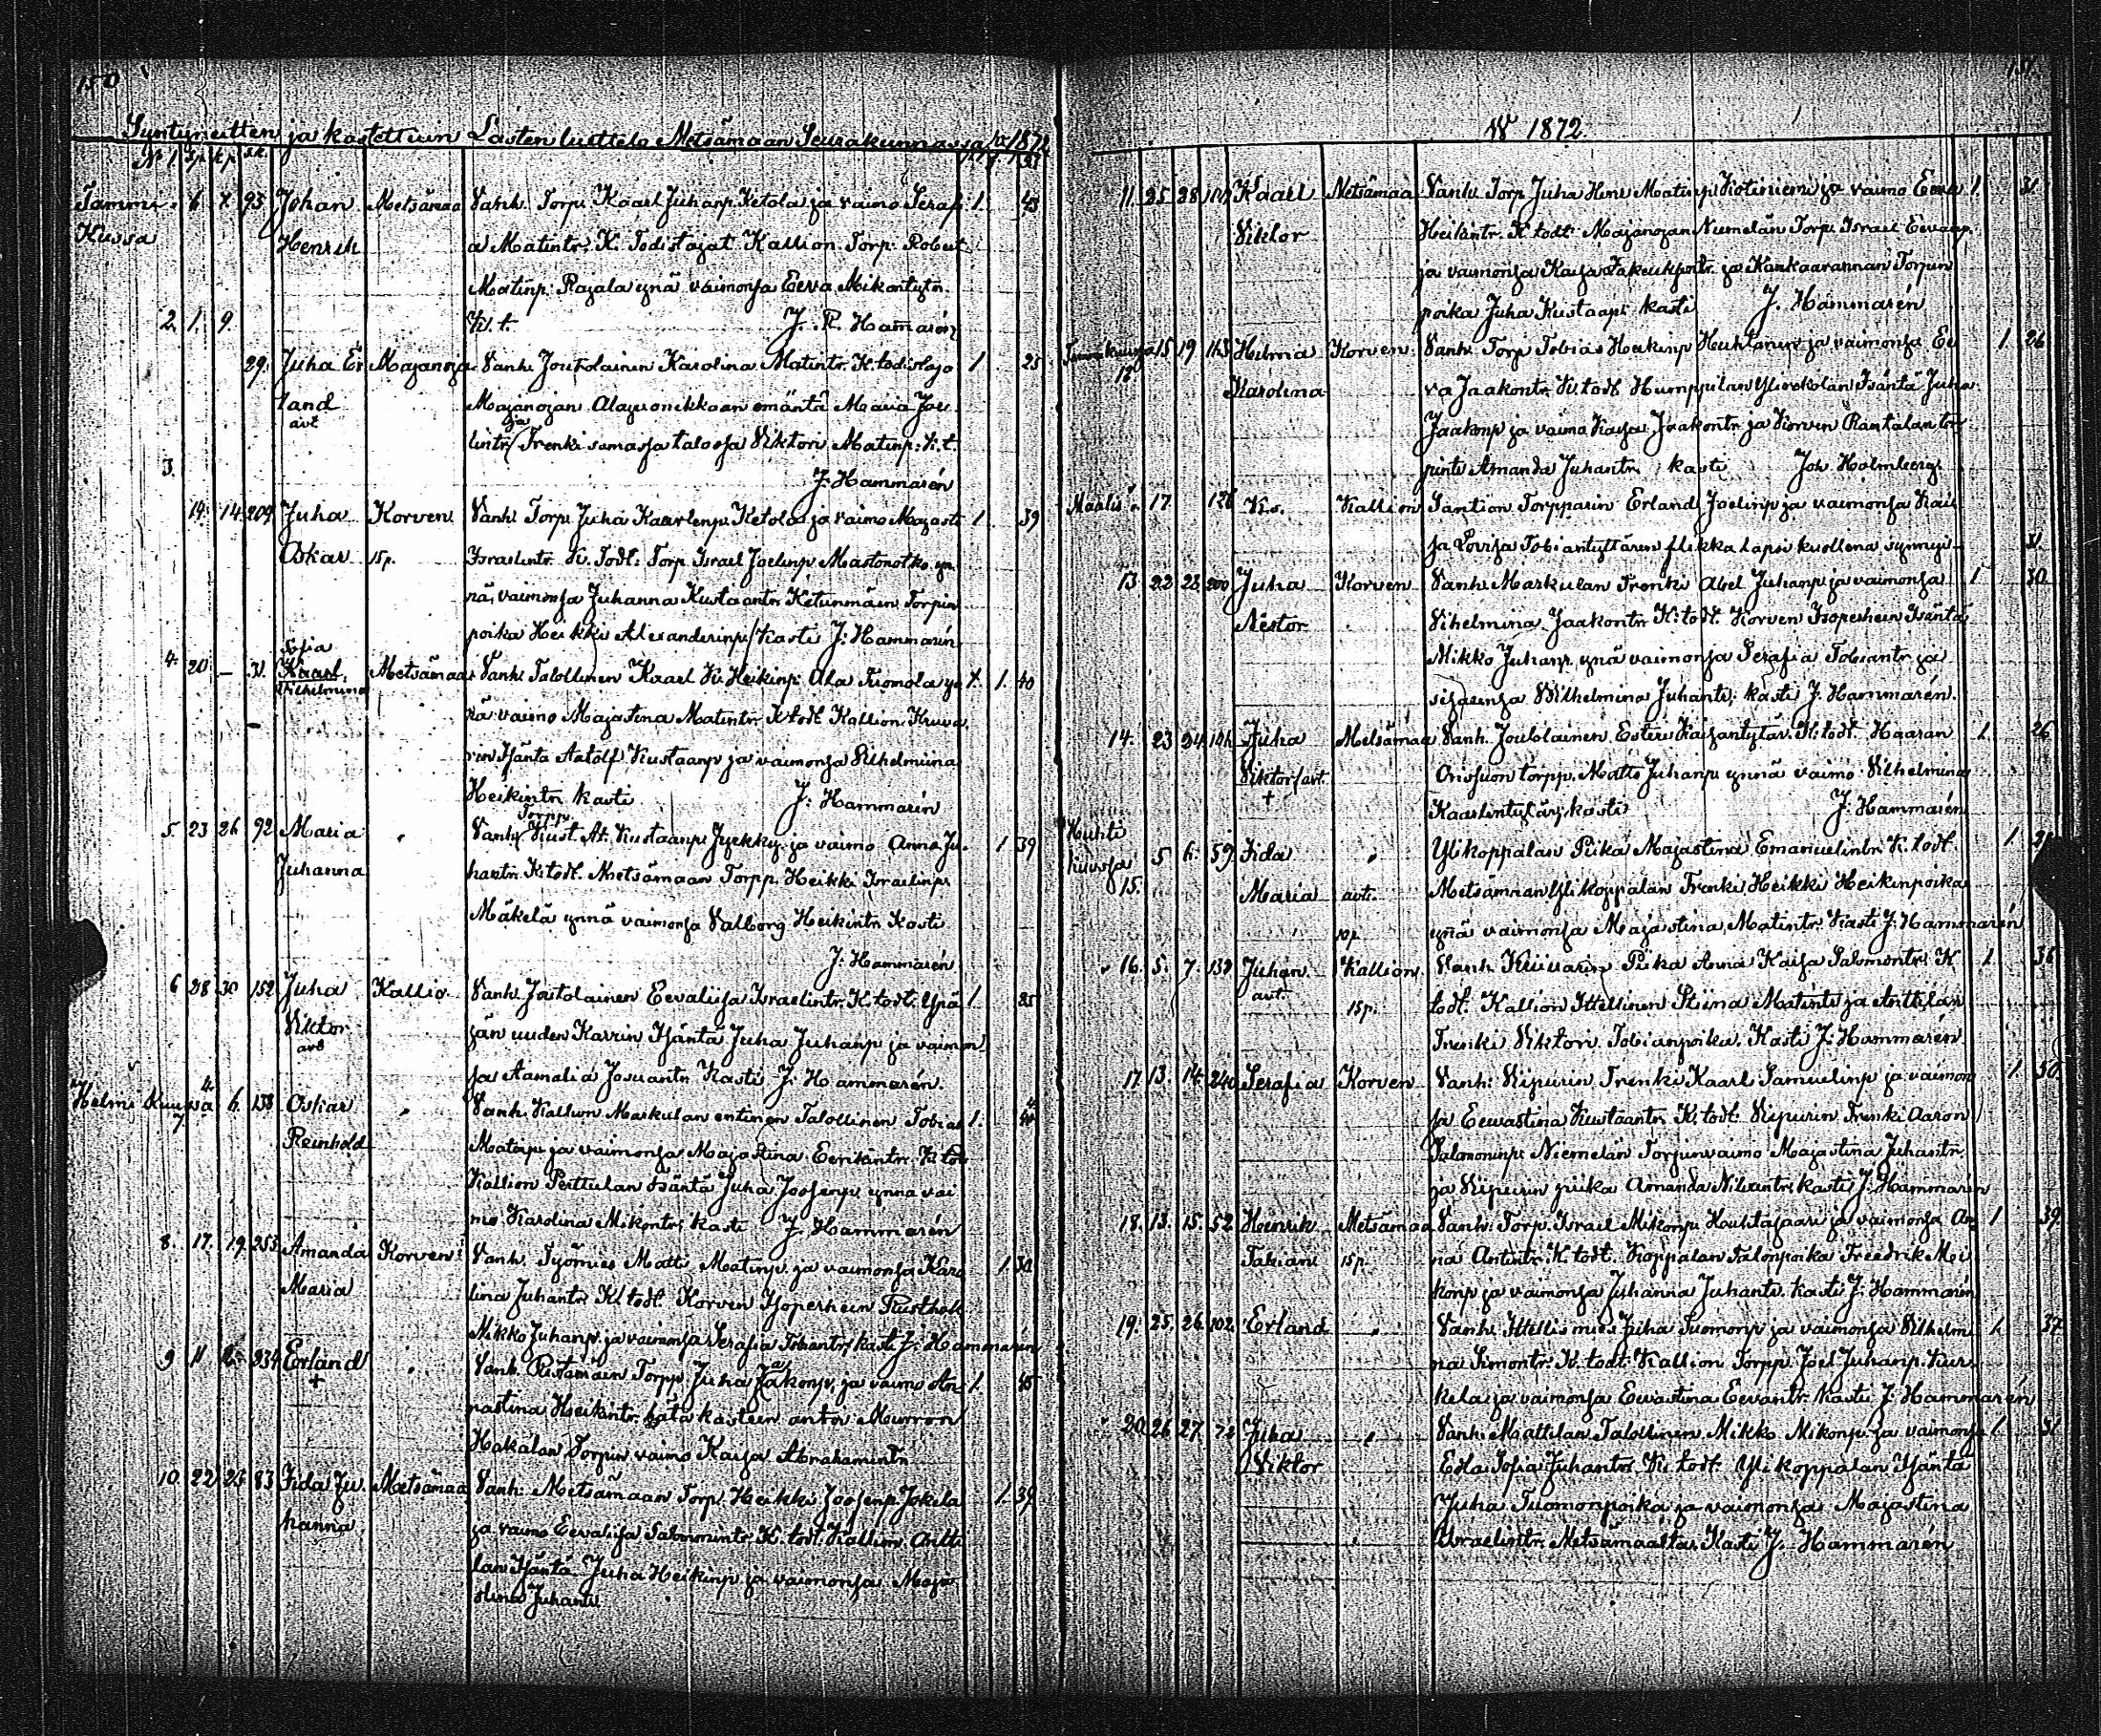 150
Syntyneitten ja kastettuin Lasten luettelo Metsämaan Seurakunnassa v. 1872
No 1. 6. 7. 93 Johan Metsämaa Vanh. Torp. Kaarl Juhanp. Ketola ja vaimo Seraf 1. 43
Henrik a Matintr. K. Todistajat Kallion Torp. Robert
Matinp. Rajala ynä vaimonsa Eeva Mikontytr.
2. 1. 9. J. R. Hammarén
29. Juha Er Majanoja Vanh. Joutolainen Karolina Matintr. K. todistajo 1 25
land Majanojan emäntä Maria Joe
avt
lintr ja Trenki samasja talosja Viktori Matinp. K. t.
3. J. Hammarén
14. 14 209 Juha Korven Vanh. Torp. Juha Kaarlenp. Ketola ja vaimo Majasti 1 39
Oskar Israelintr. K. Todt. Torp. Israel Joelinp.
nä vaimonsa Juhanna Kustaantr. Ketunmäen Torpin
poika Heikki Alexanderinp / Kasti J. Hammarén
Sofia
4. 20 — 31. Kaarl Metsämaa Vanh. Talollinen Kaarl K. Heikinp. Ala Tuomola yn 1. 40
Vilhelmina
nä vaimo Majastina Matintr. K todt Kallion
rin Isäntä Aatolf Kustaanp ja vaimonsa Vilhelmiina
Heikintr. kasti J. Hammarén
Torpp.
5. 23 26 92 Maria Vanh. Kust. Ad. Kustaanp. ja vaimo Anna Ju 1 39
Juhanna hantr. K. todt. Metsämaan Torpp. Heikki Israelinp.
Mäkelä ynnä vaimonsa Valborg Heikintr. Kasti
J. Hammarén
6 28 30 152 Juha Kallio Vanh. Joutolainen Eevaliisa Israelintr. K. todt. Ypä 1 25
Viktor jän uuden Karrin Isäntä Juha Juhanp ja vaimon
avt
sa Aamalia Josuantr. Kasti J. Hammarén.
Helmi Kuussa 4. 6. 138 Oskar Vanh. Kallion Markulan entinen Talollinen Tobias 1.
7.
Reinhold Matinp ja vaimonsa Majastina Eerikintr. K tod
Kallion Perttulan Isäntä Juha Joosenp ynnä vai
mo Karolina Mikontr. kasti J. Hammarén
8. 17. 19. 253 Amanda Korven Vanh. Työmies Matti Matinp. ja vaimonsa Karo 1. 30
Maria lina Juhantr. K. todt. Korven Isoperheen Rusthol
Mikko Juhanp. ja vaimonsa Serafia Tobiantr. kasti J. Hammarén
9 11 234 Erland Vanh. Torpp. Juha Jaakonp. ja vaimo An 1. 45
+ nastina Heikintr. hätä kasteen antoi Murron
Hakalan Torpin vaimo Kaisa Abrahamintr.
10. 22 23 83 Iida Ju Metsämaa Vanh. Metsämaan Torp. Heikki Joosenp Jokela 1. 39
hanna ja vaimo Eevaliisa Salomonintr. K. todt. Kallion Antti
lan Isäntä Juha Heikinp ja vaimonsa Maja
stina Juhantr.
151.
W 1872.
11. 25 28 Kaarl Metsämaa Vanh. Torp. Juha Henr Matinp. Kotiniemi ja vaimo Eeva 1. 31.
Viktor Heikintr. K todt. Majanojan Niemelän Torp. Israel Eevanp.
ja vaimonsa Kaisa ja Kankaarannan Torpin
poika Juha Kustaap. kasti J. Hammarén
15 19 Hilma Korven Vanh. Torp Tobias Heikinp Huhtanen ja vaimonsa Ee 1 26
12
Karolina va Jaakontr. K. todt. Humppilan Isäntä Juha
Jaakonp ja vaimo Kaisa Jaakontr. ja Korven Rantalan tor
pintr Amanda Juhantr. kasti Joh. Holmberg.
Maalis 17 Kallion Santion Torpparin Erland Joelinp ja vaimonsa Kai
sa Lovisa Tobiantyttären flikka lapsi kuollena synnyi 31.
13 22 23 200 Juha Korven Vanh. Markulan Trenki Abel Juhanp ja vaimonsa 1 30
Nestor Vihelmina Jaakontr. K. todt. Korven Isoperheen Isäntä
Mikko Juhanp. ynä vaimonsa Serafia Tobiantr. ja
sisarensa Wilhelmina Juhantr. kasti J. Hammarén.
14. 23 24 Juha Metsämaa Vanh. Joutolainen Esteri Kaisantytär. K. todt. Haaran 1. 26
Viktor / avt. torpp. Matts Juhanp ynnä vaimo Vilhelmina
+ Kaarlentytär; kasti J. Hammarén
Huhti
kuussa 5 6. 59 Iida Ylikoppalan Piika Majastina Emanuelintr. K. todt. 1.
15.
Maria avt. Metsämaan Ylikoppalan Trenki Heikki Heikinpoika
ynä vaimonsa Majastina Matintr. Kasti J. Hammarén
16. 5. 7. 139 Juhan Kallion Vanh. Piika Anna Kaisa Salomontr. K 1. 36
avt. 15p. todt. Kallion Ittellinen Stiina Matintr ja Anttilan
Trenki Viktori Tobianpoika. Kasti J. Hammarén
17. 13. 14. 240 Serafia Korven Vanh. Kipurin Trenki Kaarl Samuelinp ja vaimon 1. 30.
sa Eewastina Kustaantr. K. todt. Kipurin Trenki Aaron
Salomoninp. Niemelän Torpinvaimo Majastina Juhantr.
ja Kipurin piika Amanda kasti J. Hammarén
18. 13. 15. 52 Henrik Metsämaa Vanh. Torp. Israel Mikonp. Kouhtasaari ja vaimonsa An 1. 39.
Fabian 15p. na Antintr. K todt. Koppalan Talonpoika Freedrik Mi
konp ja vaimonsa Juhanna Juhantr. kasti J. Hammarén
19. 25. 26. 102. Erland Vanh. Ittellis mies Juha ja vaimonsa Vilhelmi 1. 37
na Simontr. K. todt. Kallion Torpp. Joel Juhanp. Kur
kela ja vaimonsa Eevastina Eevantr. Kasti J. Hammarén
20 26 27. 72 Juha Vanh. Mattilan Talollinen Mikko Mikonp. ja vaimonsa 1 31
Viktor Edla Sofia Juhantr. K. todt. Yli koppalan Isäntä
Juha Tuomonpoika ja vaimonsa Majastina
Israelintr. Metsämaalta. Kasti J. Hammarén